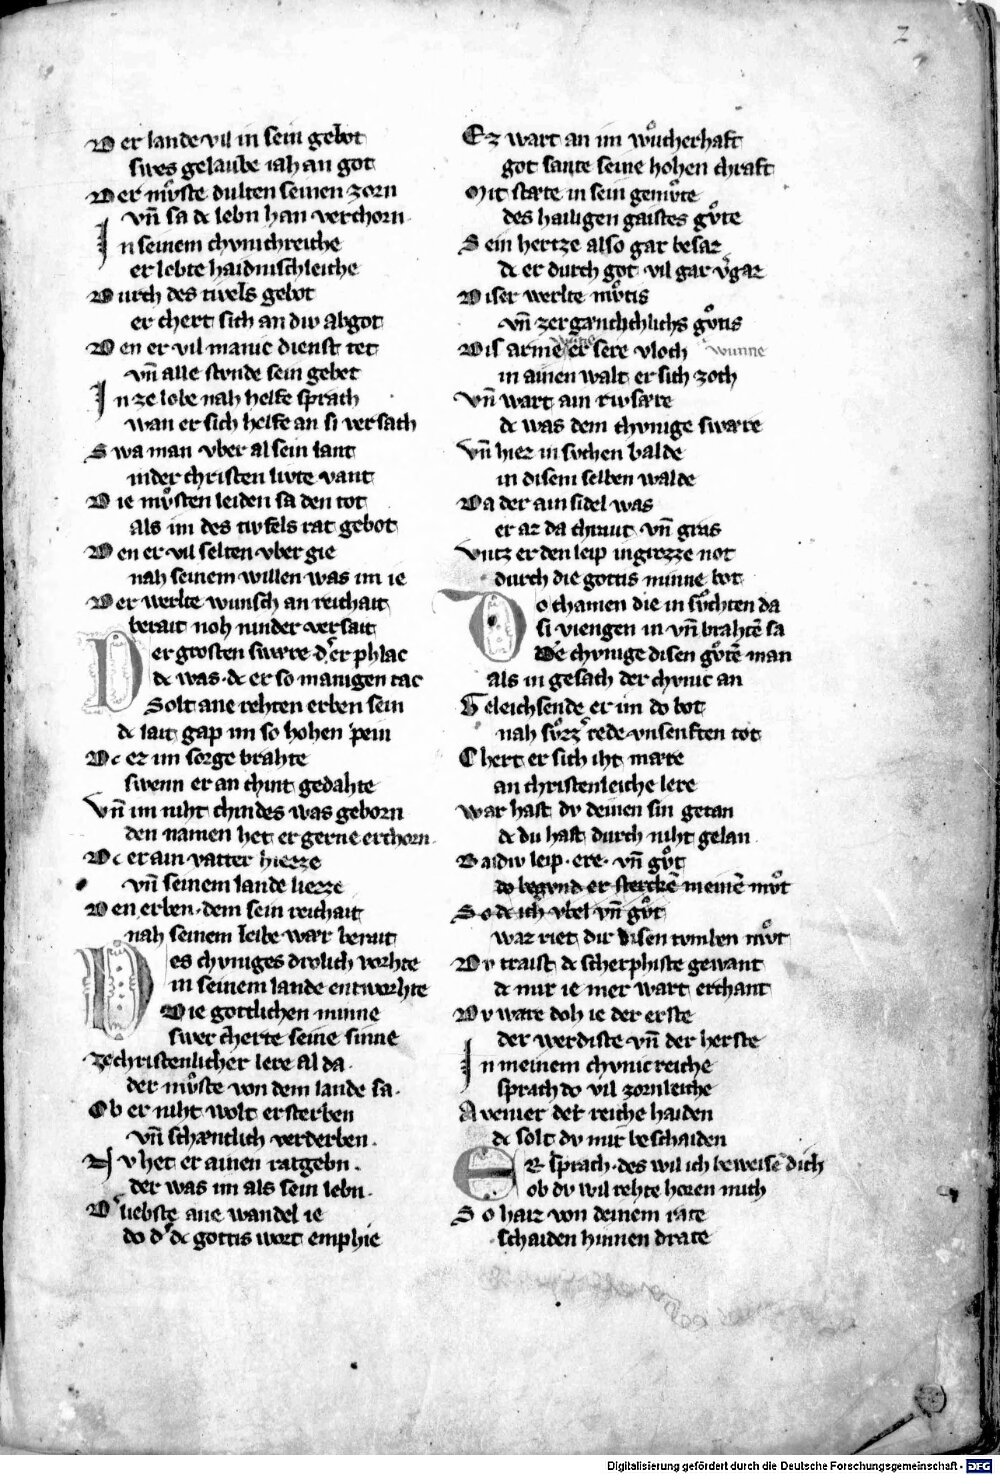 2
Der lande vil in sein gebot
swes gelaube iah an got
Der mvͦste dulten seinen zorn
vn̄ sa dc lebn han verchorn
In seinem chvnichreiche
er lebte haidnischleiche
Durch des tivels gebot
er chert sich an div abgot
Den er vil manic dienst tet
vn̄ alle stvnde sein gebet
In ze lobe nah helfe sprach
wan er sich helfe an si versach
Swa man vber al sein lant
inder christen livte vant
Die mvͦsten leiden sa den tot
als im des tivfels rat gebot
Den er vil selten vber gie
nah seinem willen was im ie
Der werlte wunsch an reichait
berait noh ninder versait
Der grosten swære der er phlac
dc was dc er so manigen tac
Solt ane rehten erben sein
dc lait gap im so hohen pein
Dc ez im sorge brahte
swenn er an chint gedahte
Vn̄ im niht chindes was geborn
den namen het er gerne erchorn
Dc er ain vatter hiezze
vn̄ seinem lande liezze
Den erben dem sein reichait
nah seinem leibe wær berait
Des chvniges drolich vorhte
in seinem lande entworhte
Die gotlichen minne
swer cherte seine sinne
Zechristenlicher lere al da
der mvͦste von dem lande sa
Ob er niht wolt ersterben
vn̄ schæntlich verderben
Nv het er ainen ratgebn
der was im als sein lebn
Der liebste ane wandel ie
do der dc gottis wort emphie
Ez wart an im wuͦcherhaft
got sante seine hohen chraft
Mit stæte in sein gemvͦte
des hailigen gaistes gvͦte
Sein hertze also gar besaz
dc er durch got vil gar vergaz
Diser werlte mvͦtis
vn̄ zergænchlichs gvͦtis
Dis arme er sere vloch wunne
in ainen walt er sich zoch
Vn̄ wart ain rivsære
dc was dem chvnige swære
Vn̄ hiez in svchen balde
in disem selben walde
Da der ainsidel was
er az da chraut vn̄ gras
Vntz er den leip in grozze not
durch die gottis minne bot
Do chamen die in svͦchten da
si viengen in vn̄ brahtē sa
Dē chvnige disen gvͦtē man
als in gesach der chvnic an
Geleichsende er im do bot
nah svͦzzer rede vnsenften tot
Chert er sich iht mære
an christenleiche lere
War hast dv deinen sin getan
dc du hast durch niht gelan
Baidiv leip ere vn̄ gvͦt
do begvnd er sterckē meinē mvͦt
So dc ich vbel vn̄ gvͦt
waz riet dir disen tvmben mvͦt
Dv traist dc scherphiste gewant
dc mir ie mer wart erchant
Dv ware doh ie der erste
der werdiste vn̄ der herste
In meinem chvnicreiche
sprach do vil zornleiche
Avenier der reiche haiden
dc solt dv mir beschaiden
Er sprach des wil ich beweisē dich
ob dv wil rehte horen mich
So haiz von deinem rate
schaiden hinnen drate
Digitalisierung gefördert durch die Deutsche Forschungsgemeinschaft - DFG